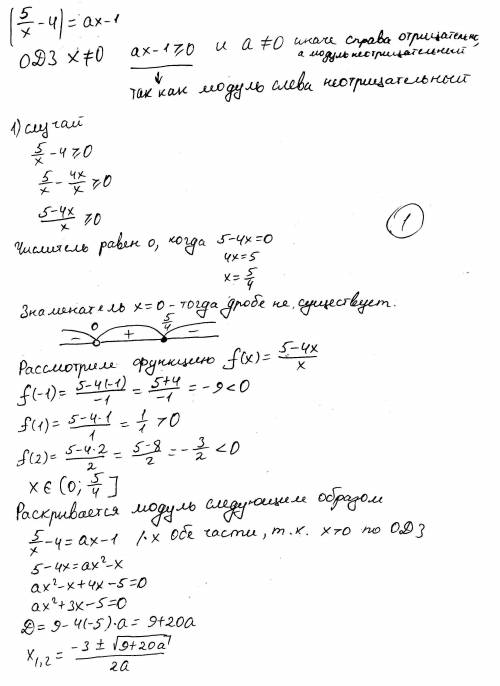 |5/x - 4| = ax-1
ОДЗ x≠0 ax-1≥0 и a≠0 иначе справа отрицательно,
а модуль неотрицательный
так как модуль слева неотрицательный
1) случай
5/x - 4 ≥ 0
5/x - 4x/x ≥ 0
(5-4x)/x ≥ 0
1
Числитель равен 0, когда 5-4x=0
4x=5
x = 5/4
Знаменатель x=0 - тогда дроби не существует.
0 5/4
- + -
Рассмотрим функцию f(x) = (5-4x)/x
f(-1) = (5-4(-1))/-1 = (5+4)/-1 = -9 < 0
f(1) = (5-4·1)/1 = 1/1 > 0
f(2) = (5-4·2)/2 = (5-8)/2 = -3/2 < 0
x ∈ (0; 5/4]
Раскривается модуль следующим образом
5/x - 4 = ax-1 /·x Обе части, т.к. x>0 по ОДЗ
5-4x = ax²-x
ax²-x+4x-5=0
ax²+3x-5=0
D = 9-4(-5)·a = 9+20a
x₁,₂ = (-3 ± √(9+20a))/2a